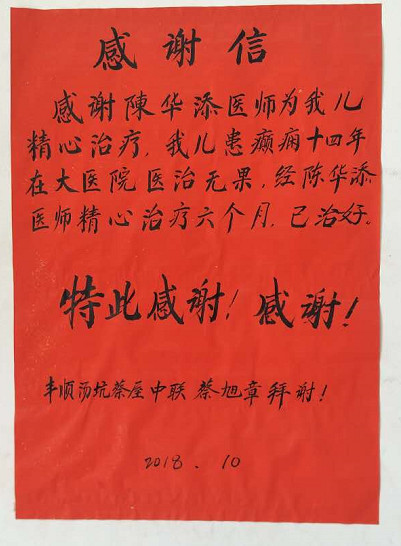 感谢信
感谢陳华添医师为我儿
精心治疗，我儿患癫痫十四年
在大医院医治无果，经陈华添
医师精心治疗六个月，已治好。
特此感谢！感谢！
丰顺汤坑蔡屋中联 蔡旭章拜谢！
2018.10